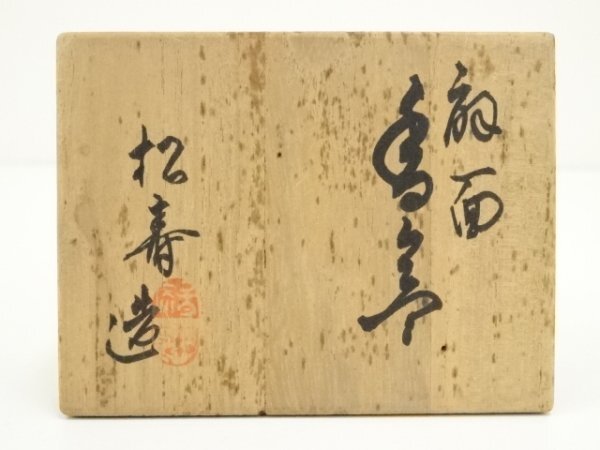 扇面
香合
松寿造